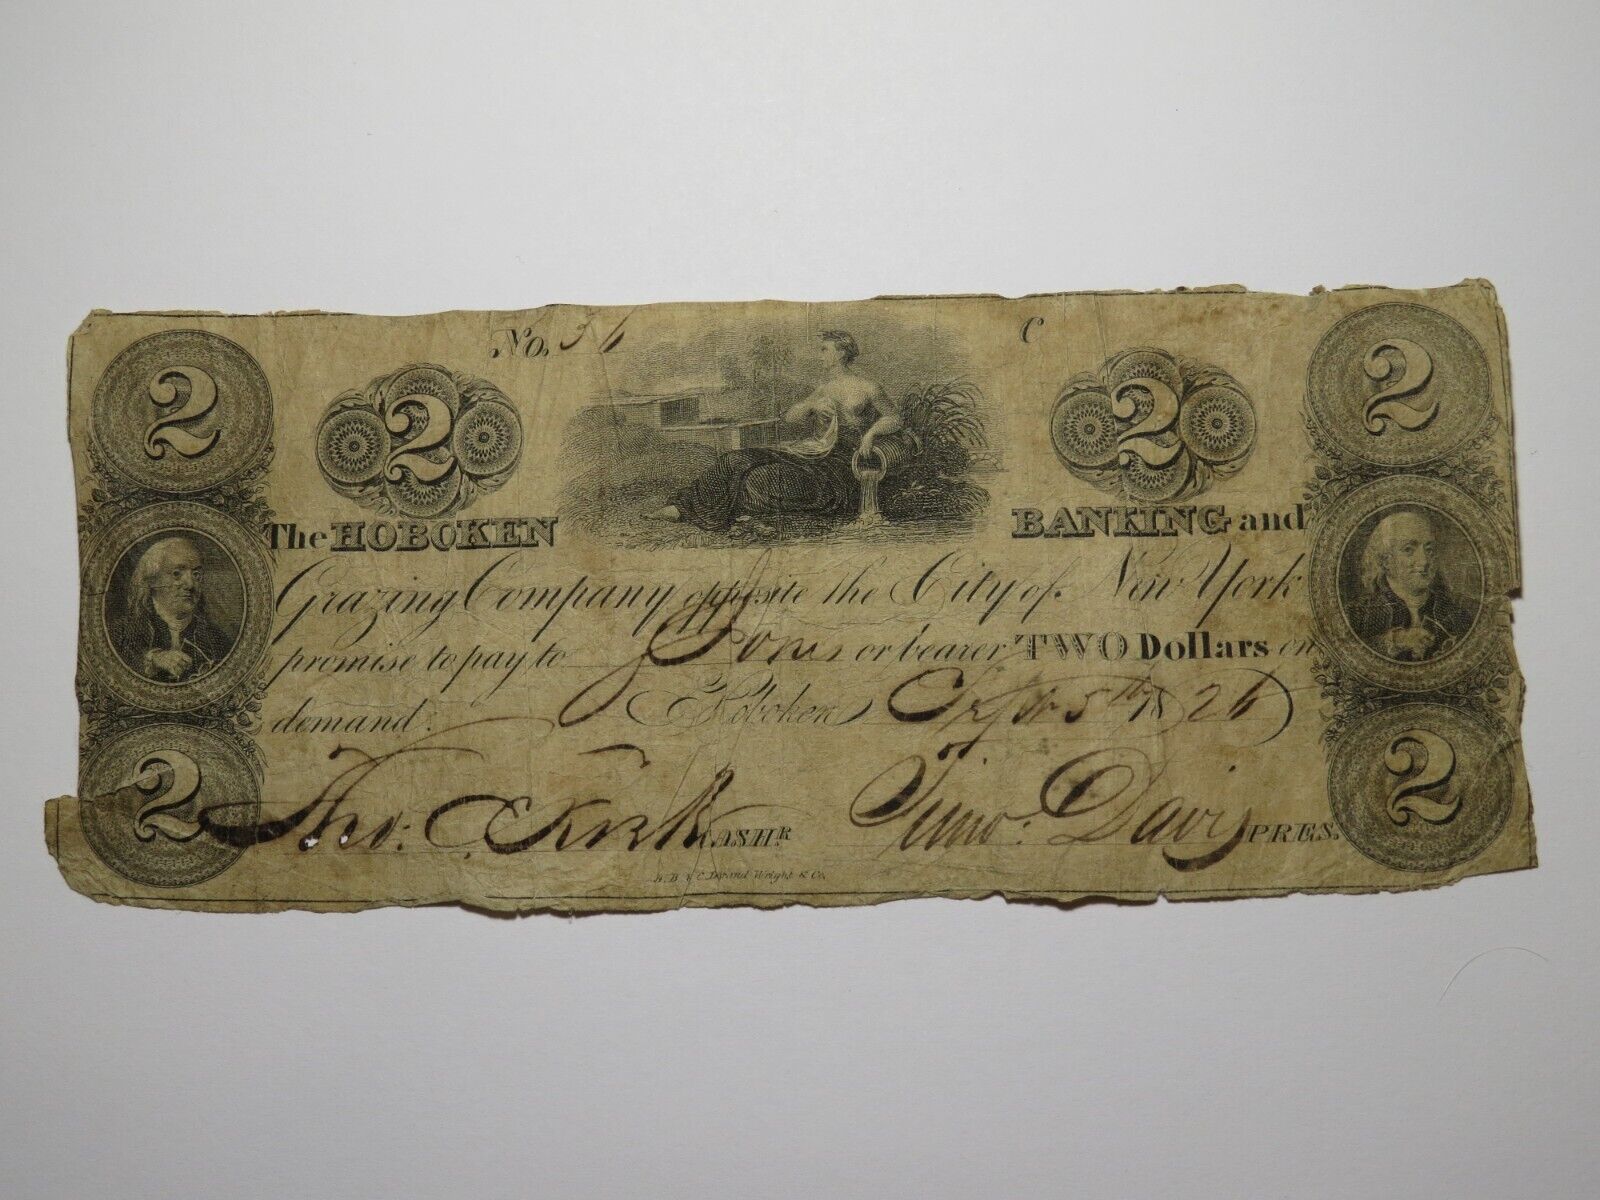 No. 36 C
2 2 2 2
The HOBOKEN BANKING and
Grazing Company opposite the City of New York
promise to pay to or bearer TWO Dollars on
demand. Hoboken 5th 1826
2 2
Tho: Kirk CASHR. Timo: Davis PRES.
Durand Wright & Co.